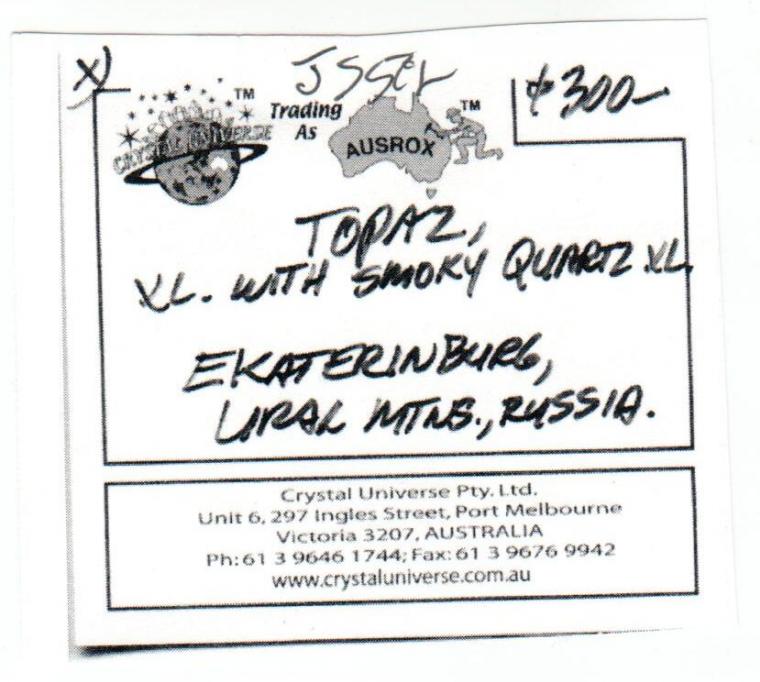 X)
$300-
CRYSTAL UNIVERSE TM
Trading
As
AUSROX TM
TOPAZ,
XL. WITH SMOKY QUARTZ XL.
EKATERINBURG,
URAL MTNS., RUSSIA.
Crystal Universe Pty. Ltd.
Unit 6, 297 Ingles Street, Port Melbourne
Victoria 3207, AUSTRALIA
Ph: 61 3 9646 1744; Fax: 61 3 9676 9942
www.crystaluniverse.com.au